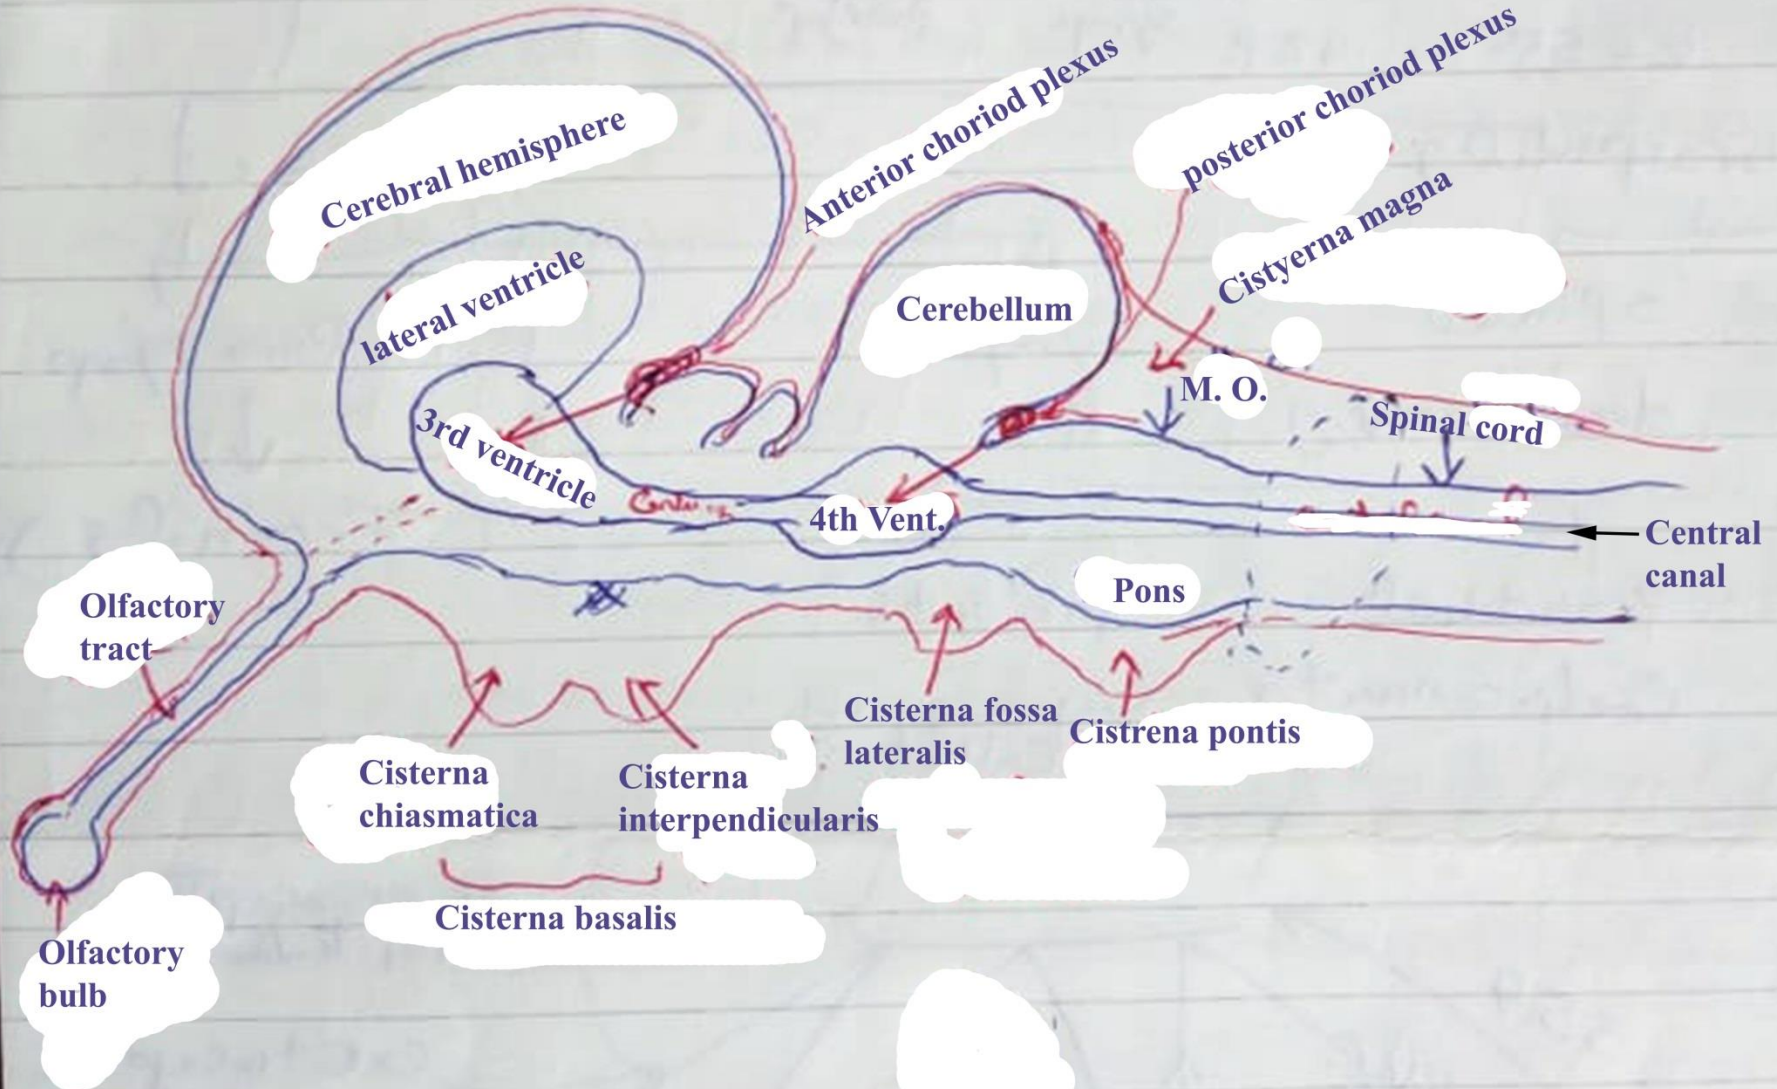 Anterior choriod plexus
posterior choriod plexus
Cerebral hemisphere
Cistyerna magna
lateral ventricle
Cerebellum
M. O.
Spinal cord
3rd ventricle
4th Vent.
Central
canal
Pons
Olfactory
tract
Cisterna fossa
lateralis
Cistrena pontis
Cisterna
chiasmatica
Cisterna
interpendicularis
Cisterna basalis
Olfactory
bulb